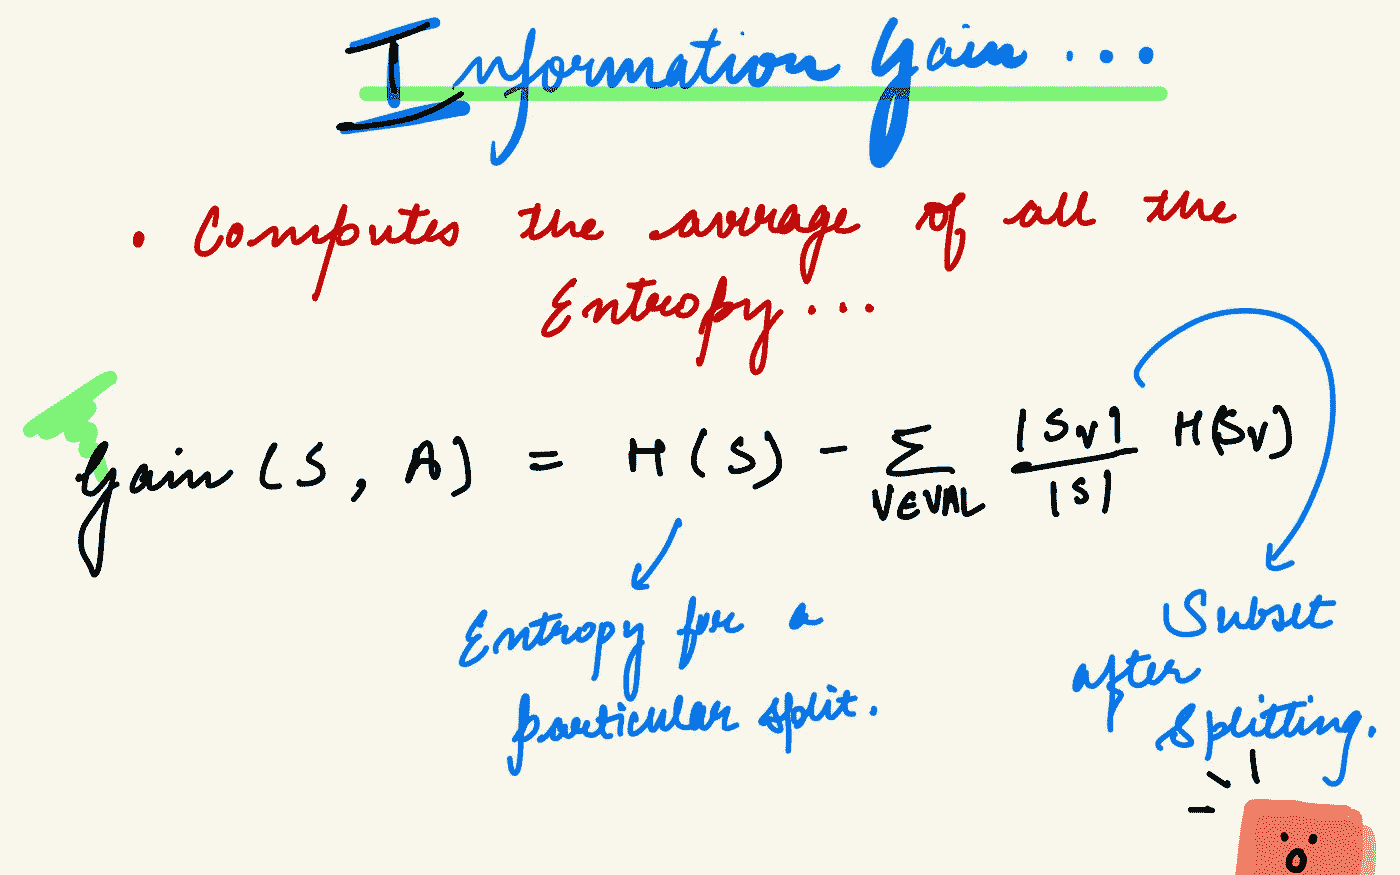 Information Gain ...
• Computes the average of all the
Entropy ...
Gain (S, A) = H(S) - Σ |Sv| H(Sv)
VEVAL |S|
Entropy for a
particular split.
Subset
after
Splitting.